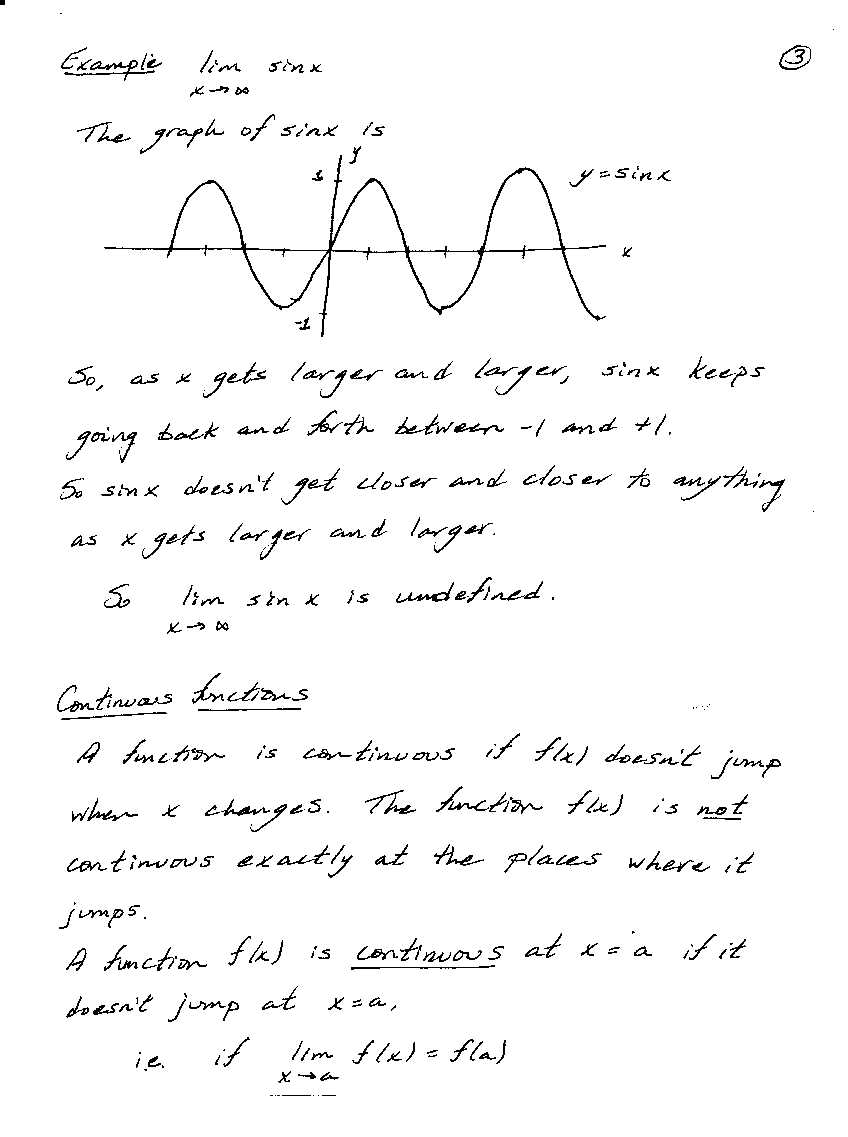 Example lim sin x
x → ∞
③
The graph of sin x is
y
1
y = sin x
x
-1
So, as x gets larger and larger, sin x keeps
going back and forth between -1 and +1.
So sin x doesn't get closer and closer to anything
as x gets larger and larger.
So lim sin x is undefined.
x → ∞
Continuous functions
A function is continuous if f(x) doesn't jump
when x changes. The function f(x) is not
continuous exactly at the places where it
jumps.
A function f(x) is continuous at x = a if it
doesn't jump at x = a,
i.e. if lim f(x) = f(a)
x → a